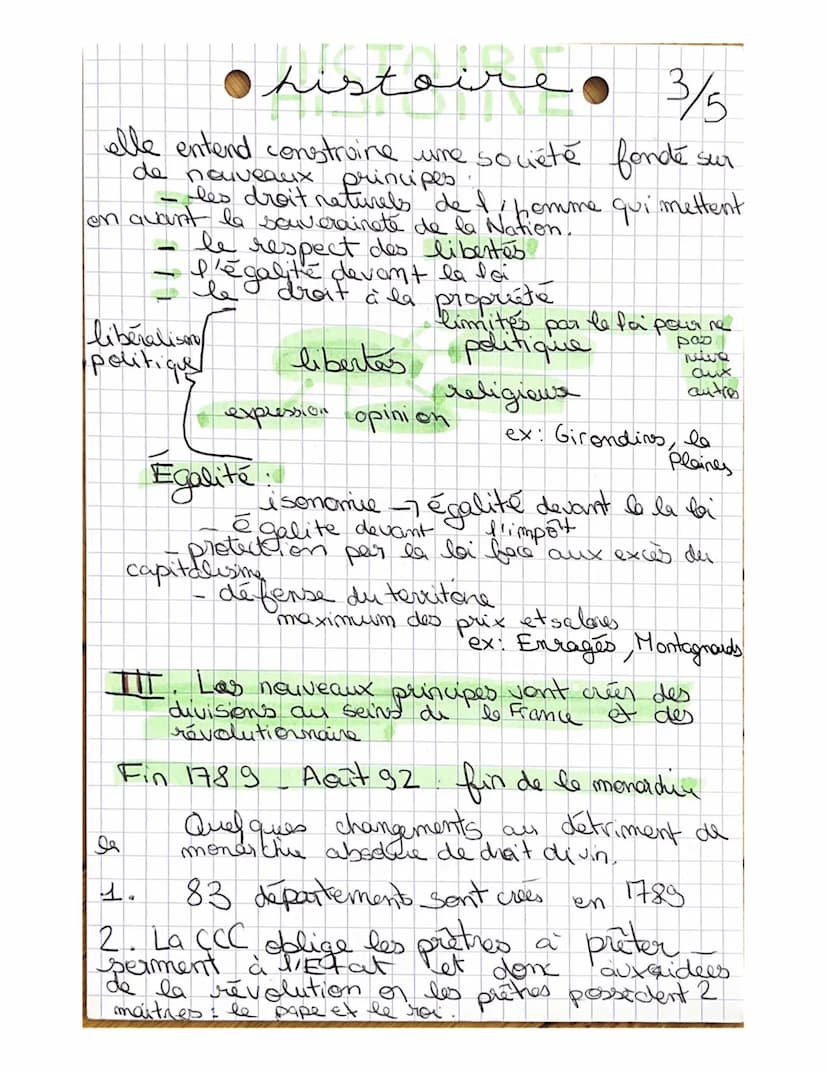 HISTOIRE
histoire 3/5
elle entend construire une société fondé sur
de nouveaux principes :
- les droit naturels de l'homme qui mettent
en avant la souveraineté de la Nation.
- le respect des libertés
- l'égalité devant la loi
- le droit à la propriété
limités par la loi pour ne
pas
nuire
aux
autres
libéralisme
politique
libertés
politique
religieux
expression opinion
ex : Girondins, la
Plaines
Égalité :
isonomie → égalité devant la loi
- égalite devant l'impôt
- protection par la loi face aux excès du
capitalisme
- défense du territoire
maximum des prix et salaires
ex : Enragés, Montagnards
III. Les nouveaux principes vont créer des
divisions au seins de la France et des
révolutionnaire
Fin 1789 - Août 92 : fin de la monarchie
Quelques changements au détriment de
la monarchie absolue de droit divin.
1. 83 départements sont crées en 1789
2. La CCC oblige les prêtres a prêter
serment à l'Etat et donc aux idées
de la révolution or les prêtres possèdent 2
maîtres : le pape et le roi.